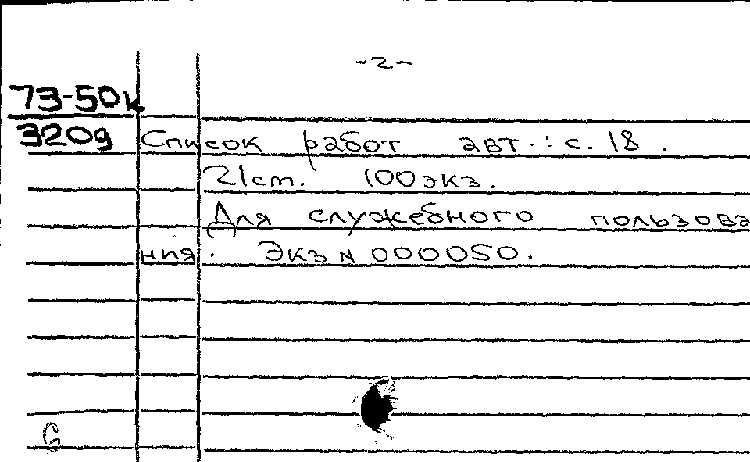 -2-
73-50к
3209 Список работ авт.: с. 18.
21см. 100экз.
Для служебного пользова
ния. Экз N 000050.
6